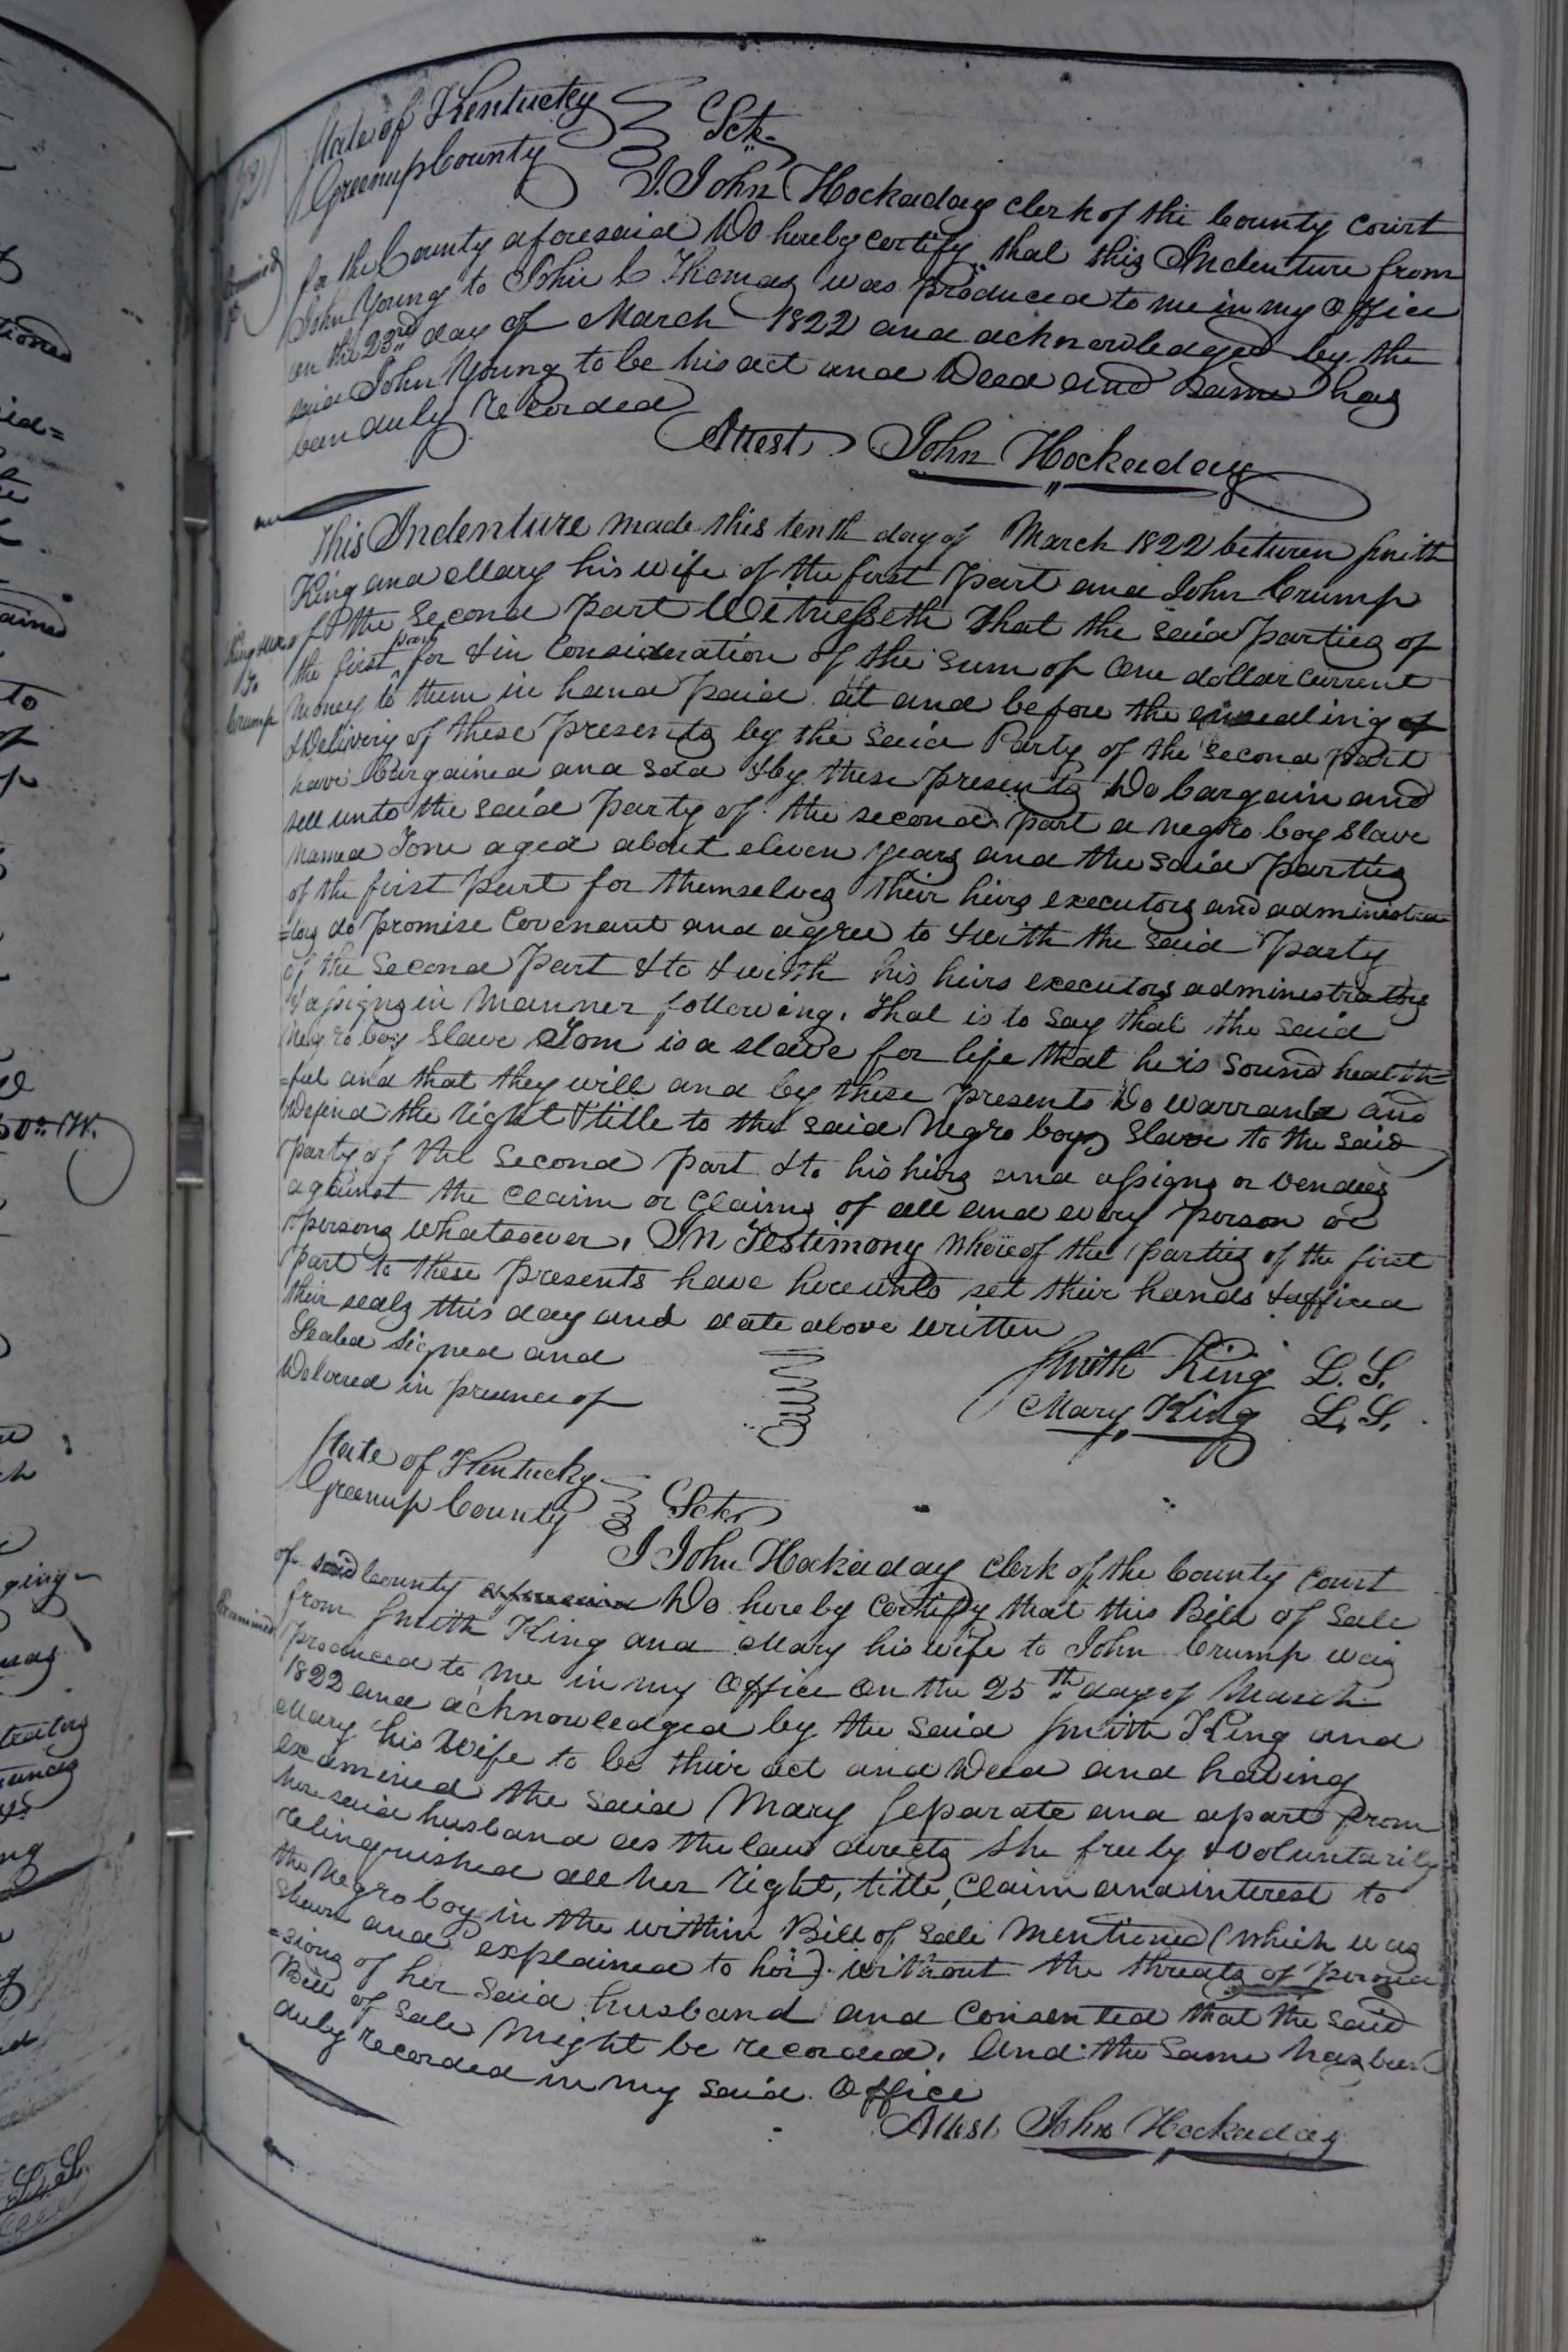 State of Kentucky
Greenup County Sct.
I. John Hockaday clerk of the County Court
for the County aforesaid Do hereby certify that this Indenture from
John Young to John C Thomas was produced to me in my office
on the 23rd day of March 1822 and acknowledged by the
said John Young to be his act and Deed and same has
ben duly recorded
Attest John Hockaday
This Indenture made this tenth day of March 1822 between Smith
King and Mary his wife of the first part and John Crump
of the second part Witnesseth that the said parties of
King &
To
Crump
the first part for & in Consideration of the sum of one dollar current
money to them in hand paid at and before the ensealing of
& Delivery of these presents by the said Party of the second part
have bargained and sold & by these presents Do bargain and
sell unto the said party of the second part a negro boy slave
named Tom aged about eleven years and the said parties
of the first part for themselves their heirs executors and administra
=tors do promise Covenant and agree to & with the said party
of the second part & to & with his heirs executors administrators
& assigns in manner following. That is to say that the said
Negro boy slave Tom is a slave for life that he is sound health=
=ful and that they will and by these presents Do warrant and
Defend the right & title to the said Negro boy slave to the said
party of the second part & to his heirs and assigns or vendees
against the claim or claims of all and every person or
persons whatsoever. In Testimony whereof the parties of the first
part to these presents have hereunto set their hands & affixed
their seals this day and date above written
Sealed signed and
Delivered in presence of
Smith King L.S.
Mary King L.S.
State of Kentucky
Greenup County Sct.
I John Hockaday Clerk of the County Court
of said County aforesaid Do hereby certify that this Bill of Sale
Examined
from Smith King and Mary his wife to John Crump was
produced to me in my office on the 25th day of March
1822 and acknowledged by the said Smith King and
Mary his wife to be their act and Deed and having
examined the said Mary separate and apart from
her said husband as the law directs she freely & voluntarily
relinquished all her right, title, claim and interest to
the Negro boy in the within Bill of Sale mentioned (which was
shewn and explained to her) without the threats of persua
=sions of her said husband and consented that the said
Bill of Sale might be recorded. And the same has been
duly recorded in my said office
Attest John Hockaday